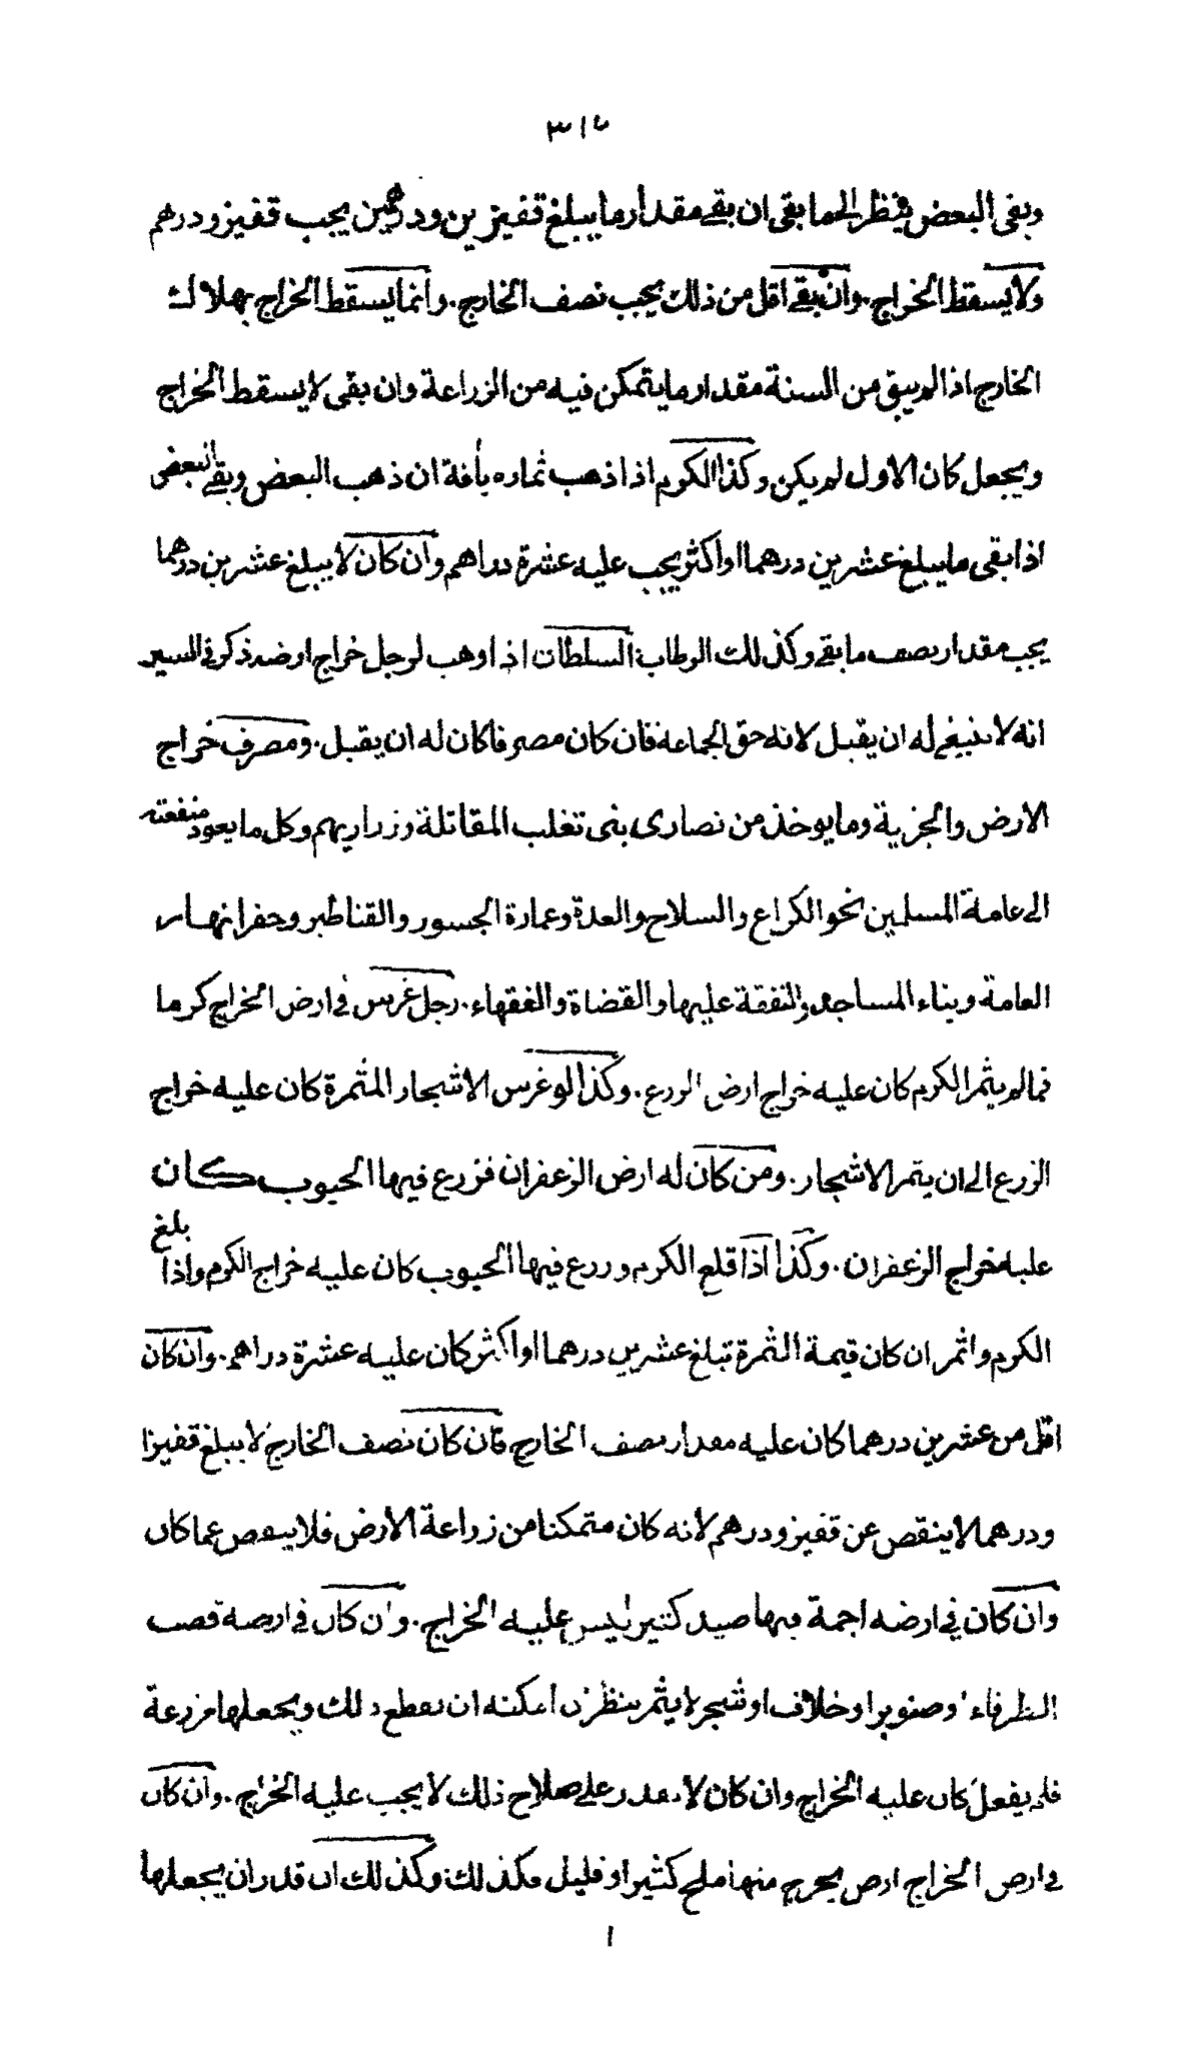 ٣١٥
وبقى البعض ينظر الى ما بقى ان بقى مقدار ما يبلغ قفيزين ودرهمين يجب قفيز ودرهم
ولا يسقط الخراج . وان بقى اقل من ذلك يجب نصف الخارج . وانما يسقط الخراج بهلاك
الخارج اذا لم يبق من السنة مقدار ما يتمكن فيه من الزراعة وان بقى لا يسقط الخراج
ويجعل كان الاول لم يكن وكذا الكرم اذا ذهب ثماره بأفة ان ذهب البعض وبقى البعض
اذا بقى ما يبلغ عشرين درهما او اكثر يجب عليه عشرة دراهم وان كان لا يبلغ عشرين درهما
يجب مقدار نصف ما بقى وكذلك الرطاب السلطان اذا وهب لرجل خراج ارضه ذكر في السير
انه لا ينبغي له ان يقبل لانه حق الجماعة فان كان مصرفا كان له ان يقبل . ومصرف خراج
الارض والجزية وما يوخذ من نصارى بنى تغلب المقاتلة وزراريهم وكل ما يعود منفعته
الى عامة المسلمين نحو الكراع والسلاح والعدة وعمارة الجسور والقناطير وحفر انهار
العامة وبناء المساجد والنفقة عليها والقضاة والفقهاء . رجل غرس في ارض الخراج كرما
فما لم يثمر الكرم كان عليه خراج ارض الزرع . وكذا لو غرس الاشجار المثمرة كان عليه خراج
الزرع الى ان يتمر الاشجار . ومن كان له ارض الزعفران فزرع فيها الحبوب كان
عليه خراج الزعفران . وكذا اذا قلع الكرم وزرع فيها الحبوب كان عليه خراج الكرم واذا بلغ
الكرم واثمر ان كان قيمة الثمرة تبلغ عشرين درهما او اكثر كان عليه عشرة دراهم . وان كان
اقل من عشرين درهما كان عليه مقدار نصف الخارج فان كان نصف الخارج لا يبلغ قفيزا
ودرهما لا ينقص عن قفيز ودرهم لانه كان متمكنا من زراعة الأرض فلا ينقص عما كان
وان كان في ارضه اجمة فيها صيد كثير ليس عليه الخراج . وان كان في ارضه قصب
الطرفاء وصنوبر او خلاف او شجر لا يثمر ينظر ان امكنه ان يقطع ذلك ويجعلها مزرعة
فلم يفعل كان عليه الخراج وان كان لا يقدر على صلاح ذلك لا يجب عليه الخراج . وان كان
في ارض الخراج ارض يخرج منها ملح كثير او قليل فكذلك وكذلك ان قدر ان يجعلها
١